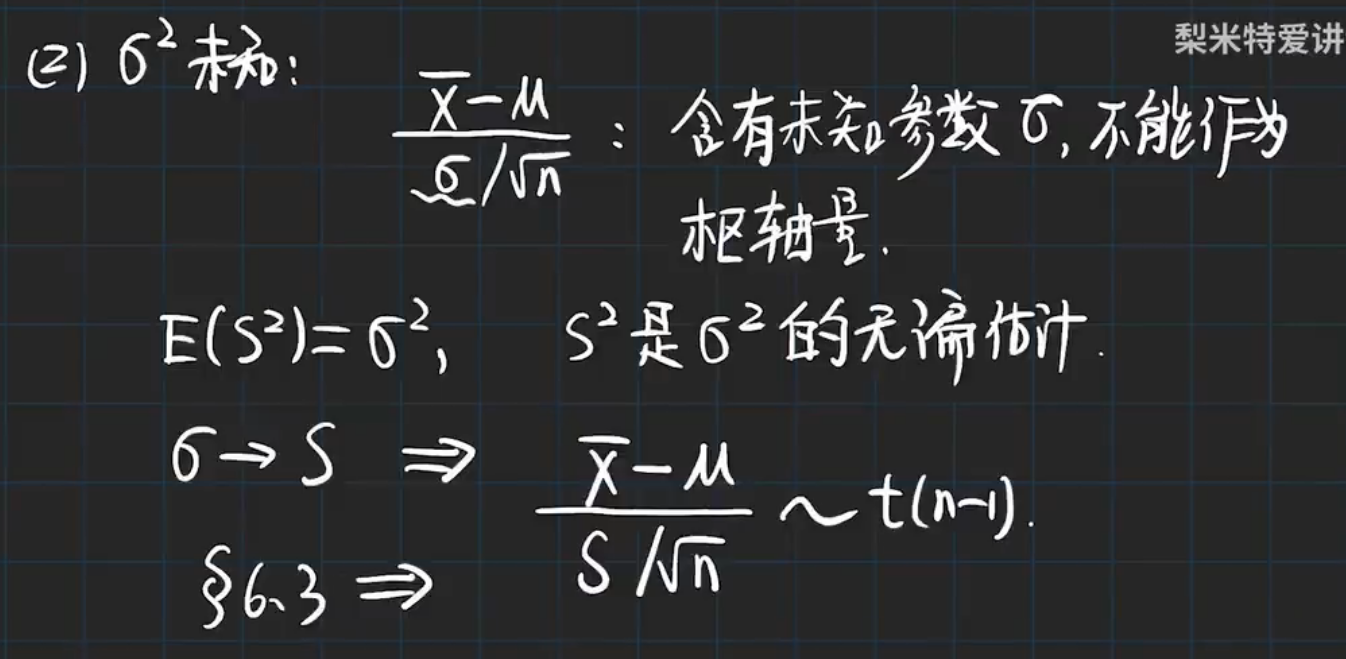 梨米特爱讲
(2) σ² 未知:
(X̄-μ)/(σ/√n) : 含有未知参数 σ, 不能作为
枢轴量.
E(S²)=σ², S²是σ²的无偏估计.
σ→S ⇒ (X̄-μ)/(S/√n) ~ t(n-1).
§6.3 ⇒